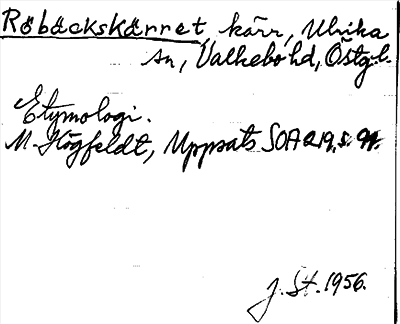 Röbäckskärret, kärr, Ulrika
sn, Valkebo hd, Östg.l.
Etymologi.
M. Högfeldt, Uppsats SOA 219, s.
J. St. 1956.